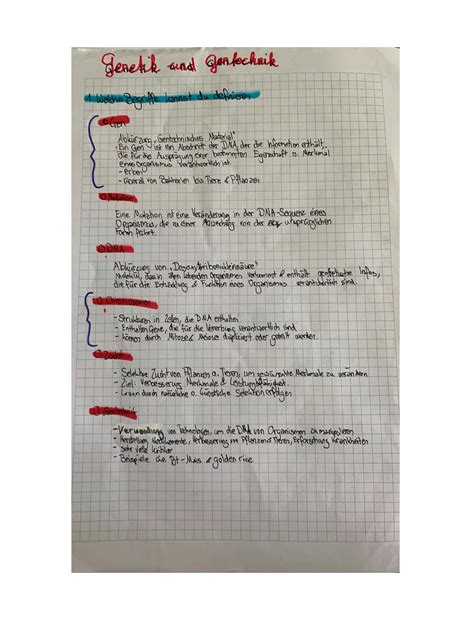 Genetik und Gentechnik
1. Welche Begriffe kannst du definieren
Gen
Abkürzung „Gentechnisches Material"
Ein Gen ist ein Abschnitt der DNA, der die Information enthält,
die für die Ausprägung einer bestimmten Eigenschaft o. Merkmal
eines Organismus verantwortlich ist
- Erben
- überall von Bakterien bis Tiere & Pflanzen
Mutation
Eine Mutation ist eine Veränderung in der DNA-Sequenz eines
Organismus, die zu einer Abweichung von der ursprünglichen
Form führt.
DNA
Abkürzung von „Desoxyribonukleinsäure"
Molekül, das in allen lebenden Organismen vorkommt & enthält genetische Infos,
die für die Entwicklung & Funktion eines Organismus verantwortlich sind.
Chromosomen
- Strukturen in Zellen, die DNA enthalten
- Enthalten Gene, die für die Vererbung verantwortlich sind
- können durch Mitose & Meiose dupliziert oder geteilt werden.
Zucht
- Selektive Zucht von Pflanzen o. Tieren, um gewünschte Merkmale zu verändern
- Ziel: Verbesserung Merkmale & Leistungsfähigkeit.
- kann durch natürliche o. künstliche Selektion erfolgen
Gentechnik
- Verwendung von Technologien, um die DNA von Organismen zu manipulieren
- Herstellung Medikamente, Verbesserung von Pflanzen & Tieren, Erforschung Krankheiten
- sehr viele Kritiker
- Beispiele wie Bt-Mais & golden rice